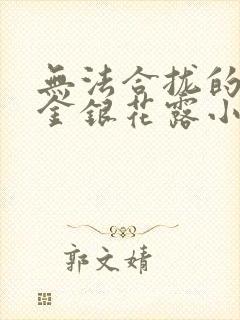 無法合拢的
金銀花露小
郭文婧